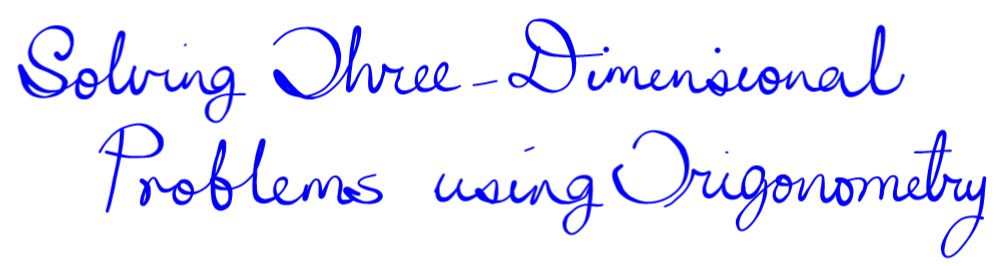 Solving Three-Dimensional
Problems using Trigonometry